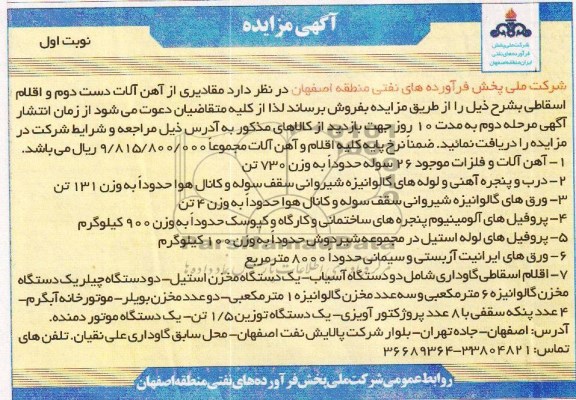 آگهی مزایده
نوبت اول
شرکت ملی پخش
فرآورده های نفتی
ایران منطقه اصفهان
شرکت ملی پخش فرآورده های نفتی منطقه اصفهان در نظر دارد مقادیری از آهن آلات دست دوم و اقلام
اسقاطی بشرح ذیل را از طریق مزایده بفروش برساند لذا از کلیه متقاضیان دعوت می شود از زمان انتشار
آگهی مرحله دوم به مدت ۱۰ روز جهت بازدید از کالاهای مذکور به آدرس ذیل مراجعه و شرایط شرکت در
مزایده را دریافت نمائید. ضمناً نرخ پایه کلیه اقلام و آهن آلات مجموعاً ۹/۸۱۵/۸۰۰/۰۰۰ ریال می باشد.
۱- آهن آلات و فلزات موجود ۲۶ سوله حدوداً به وزن ۷۳۰ تن
۲- درب و پنجره آهنی و لوله های گالوانیزه شیروانی سقف سوله و کانال هوا حدوداً به وزن ۱۳۱ تن
۳- ورق های گالوانیزه شیروانی سقف سوله و کانال هوا حدوداً به وزن ۴ تن
۴- پروفیل های آلومینیوم پنجره های ساختمانی و کارگاه و کیوسک حدوداً به وزن ۹۰۰ کیلوگرم
۵- پروفیل های لوله استیل در مجموعه شیردوش حدوداً به وزن ۱۰۰ کیلوگرم
۶- ورق های ایرانیت آزبستی و سیمانی حدودا ۸۰۰۰ مترمربع
۷- اقلام اسقاطی گاوداری شامل دو دستگاه آسیاب- یک دستگاه مخزن استیل- دو دستگاه چیلر یک دستگاه
مخزن گالوانیزه ۶ مترمکعبی و سه عدد مخزن گالوانیزه ۱۰ مترمکعبی- دو عدد مخزن بویلر- موتورخانه آبگرم-
۴ عدد پنکه سقفی با ۸ عدد پروژکتور آویزی- یک دستگاه توزین ۱/۵ تن- یک دستگاه موتور دمنده.
آدرس: اصفهان- جاده تهران- بلوار شرکت پالایش نفت اصفهان- محل سابق گاوداری علی نقیان. تلفن های
تماس: ۳۳۸۰۴۸۲۱-۳۶۶۸۹۳۶۴
روابط عمومی شرکت ملی پخش فرآورده های نفتی منطقه اصفهان